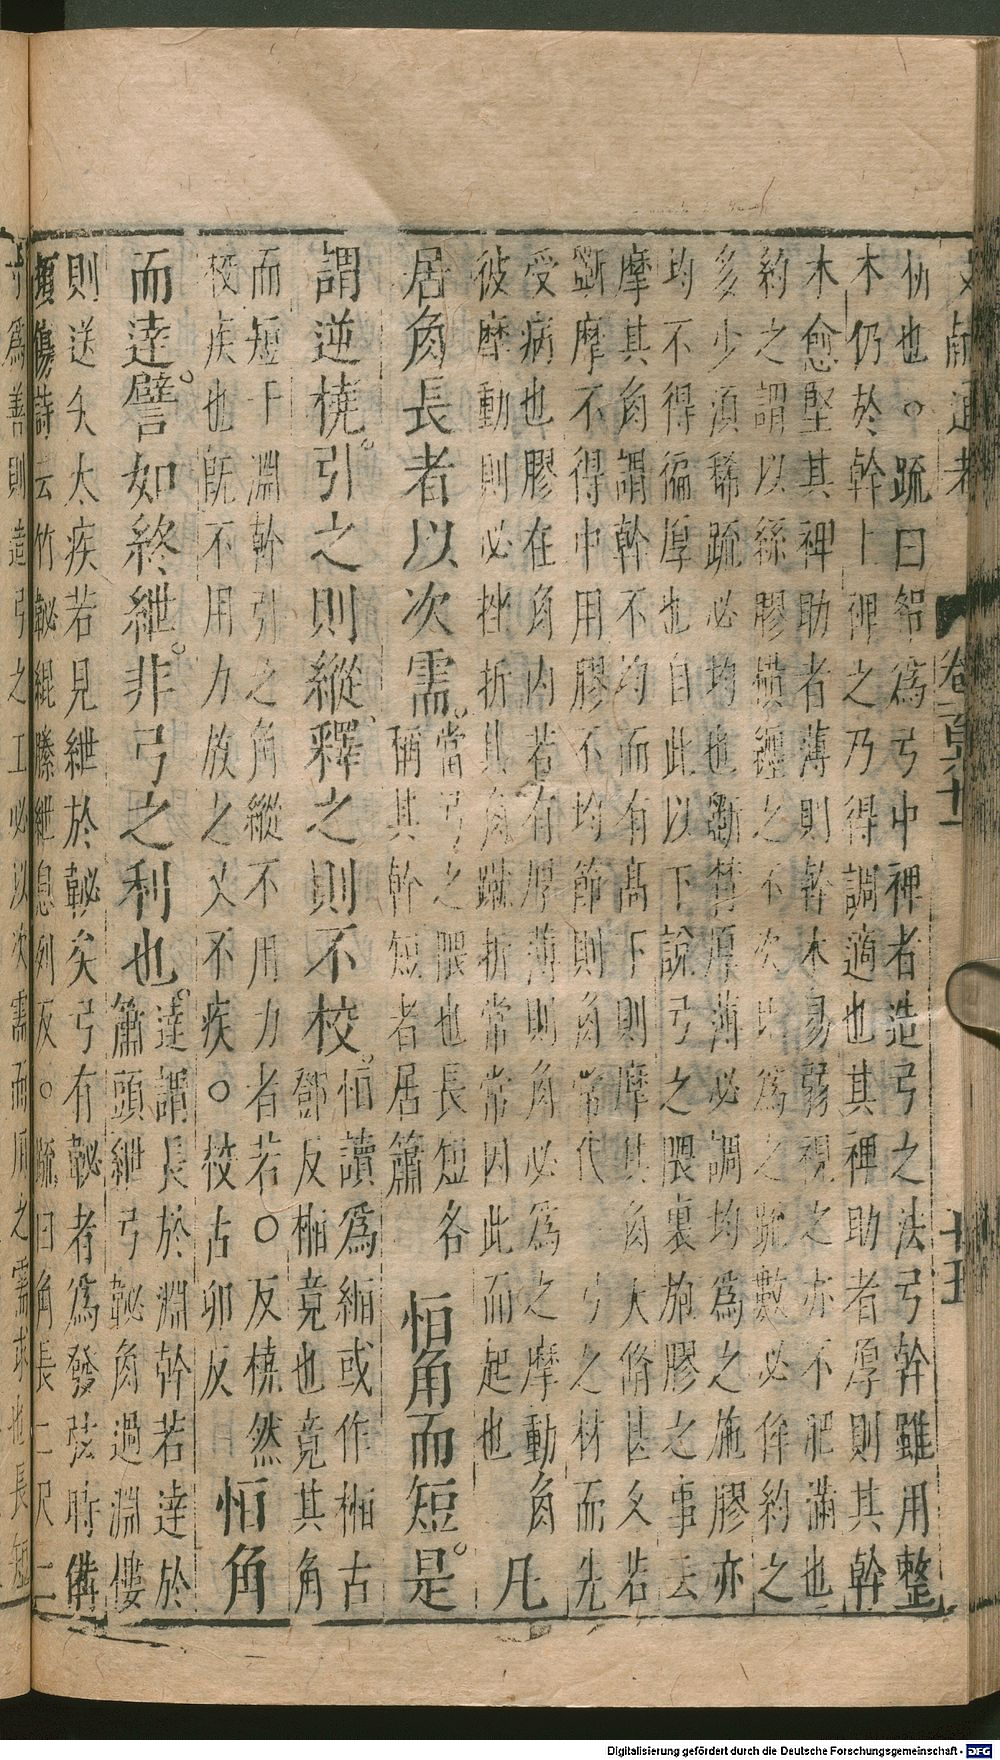 文獻通考 卷一百六十一 十五
杒也。疏曰帤爲弓中裨者造弓之法弓幹雖用整
木仍於幹上裨之乃得調適也其裨助者厚則其幹
木愈堅其裨助者薄則幹木易弱視之亦不肥滿也
約之謂以絲膠橫纏之不次比爲之疏數必侔約之
多少須稀疏必均也斵摯厚薄必調均爲之施膠亦
均不得偏厚也自此以下說弓之隈裏施膠之事云
摩其角謂幹不均而有高下則摩其角大脩甚久若
斵摩不得中用膠不均節則角常代 弓之材而先
受病也膠在角內若有厚薄則角必爲之摩動 角
彼摩動則必挫折其角蹴折常常因此而起也 凡
居角長者以次需。當弓之隈也長短各
稱其幹短者居簫 恒角而短。是
謂逆橈。引之則縱。釋之則不校。恒讀爲縆或作桓古
鄧反桓竟也竟其角
而短于淵幹引之角縱不用力者若。反橈然
校疾也旣不用力放之又不疾。校古卯反 恒角
而達。譬如終紲。非弓之利也。達謂長於淵幹若達於
簫頭紲弓䪐角過淵僂
則送矢太疾若見紲於䪐矣弓有䪐者爲發弦時備
頓傷詩云竹䪐緄縢紲息列反。疏曰角長二尺二
寸爲善則造弓之工必以次需而用之需求也長短
Digitalisierung gefördert durch die Deutsche Forschungsgemeinschaft - DFG